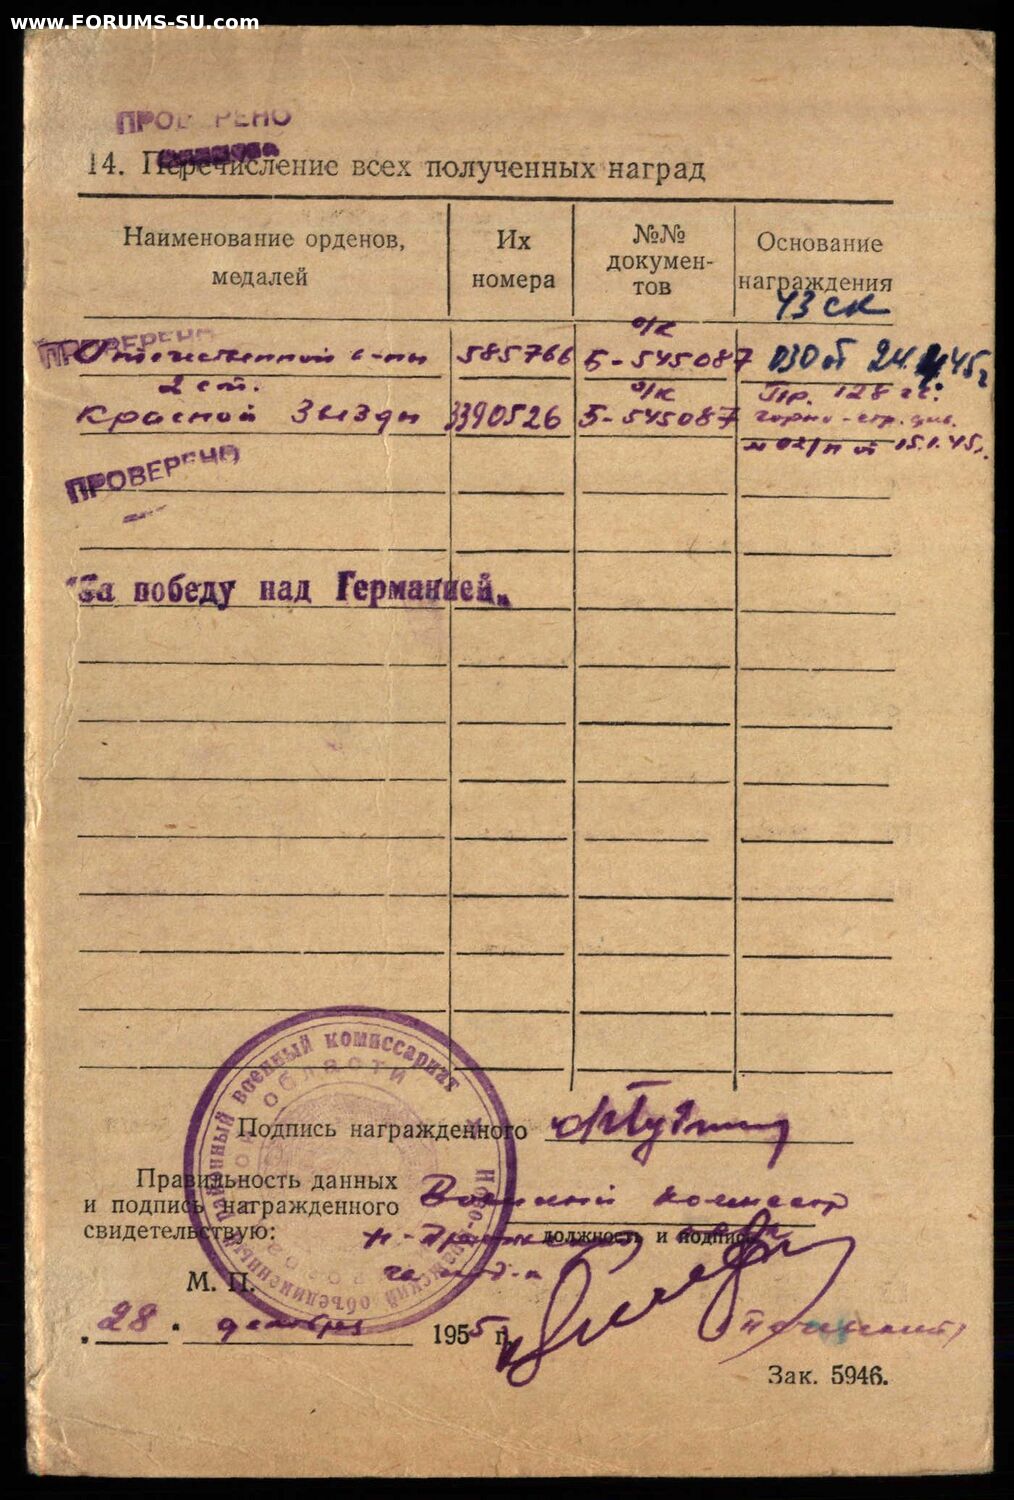 www.FORUMS-SU.com
ПРОВЕРЕНО
14. Перечисление всех полученных наград
Наименование орденов, медалей
Их номера
№№ докумен-тов
Основание награждения
43 ск
ПРОВЕРЕНО
о/к
Отечественной в-ны 585766 Б-545087 030 от 24.4.45г
2 ст. о/к Пр. 128 гв.
Красной Звезды 3390526 Б-545087 горно-стр. див.
№ 02/н от 15.1.45г.
ПРОВЕРЕНО
"За победу над Германией„
Ново-Пражский объединенный районный военный комиссариат
области
Подпись награжденного
Правильность данных
и подпись награжденного
свидетельствую:
Военный комиссар
должность и подпись
М. П.
„28" декабря 1955 г.
Зак. 5946.